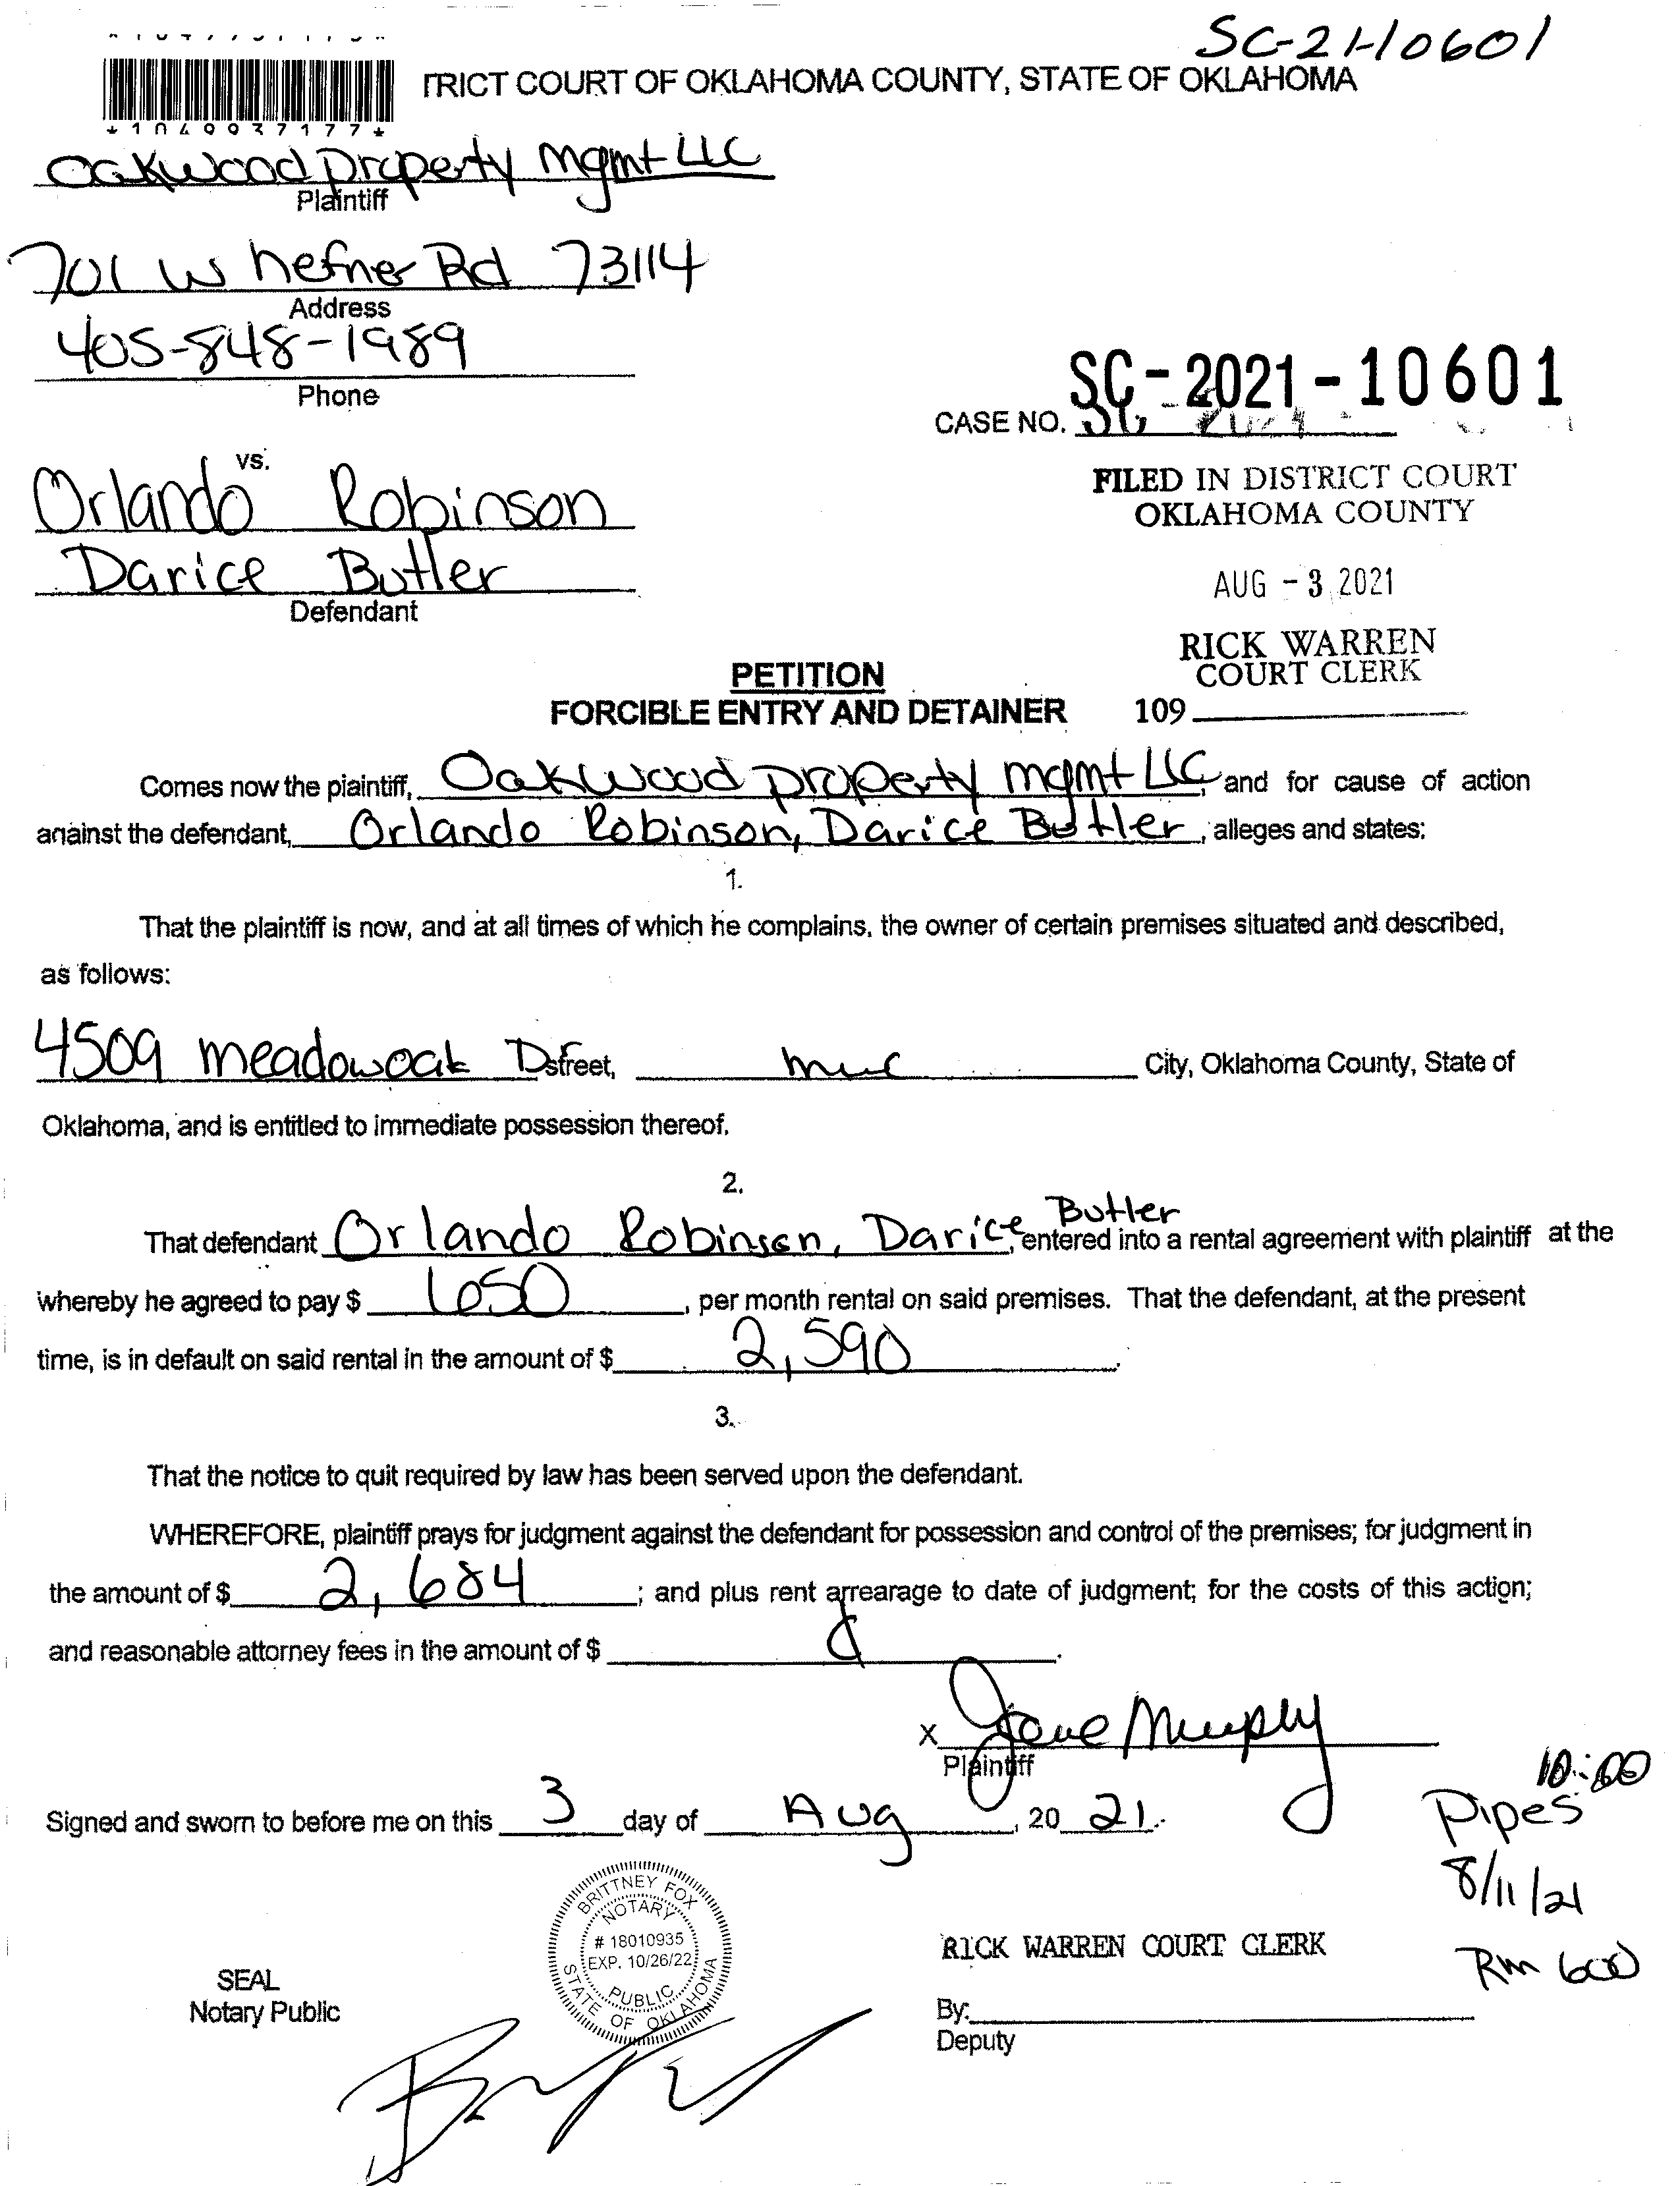 SC-21-10601
TRICT COURT OF OKLAHOMA COUNTY, STATE OF OKLAHOMA
*1049937177*
Oakwood Property mgmt LLC
Plaintiff
701 W hefner Rd 73114
Address
405-848-1989
Phone
SC-2021-10601
CASE NO.
vs.
FILED IN DISTRICT COURT
OKLAHOMA COUNTY
Orlando Robinson
Darice Butler
Defendant
AUG - 3 2021
RICK WARREN
COURT CLERK
109
PETITION
FORCIBLE ENTRY AND DETAINER
Comes now the plaintiff, Oakwood property mgmt LLC, and for cause of action
against the defendant, Orlando Robinson, Darice Butler, alleges and states:
1.
That the plaintiff is now, and at all times of which he complains, the owner of certain premises situated and described,
as follows:
4509 meadowoak D street, mwc City, Oklahoma County, State of
Oklahoma, and is entitled to immediate possession thereof.
2.
That defendant Orlando Robinson, Darice Butler, entered into a rental agreement with plaintiff at the
whereby he agreed to pay $ 650, per month rental on said premises. That the defendant, at the present
time, is in default on said rental in the amount of $ 2,590.
3.
That the notice to quit required by law has been served upon the defendant.
WHEREFORE, plaintiff prays for judgment against the defendant for possession and control of the premises; for judgment in
the amount of $ 2,684; and plus rent arrearage to date of judgment; for the costs of this action;
and reasonable attorney fees in the amount of $
X Murphy
Plaintiff
Signed and sworn to before me on this 3 day of Aug, 20 21.
10:00
Pipes
8/11/21
Rm 600
BRITTNEY FOX
NOTARY
# 18010935
EXP. 10/26/22
PUBLIC
STATE OF OKLAHOMA
SEAL
Notary Public
RICK WARREN COURT CLERK
By:
Deputy